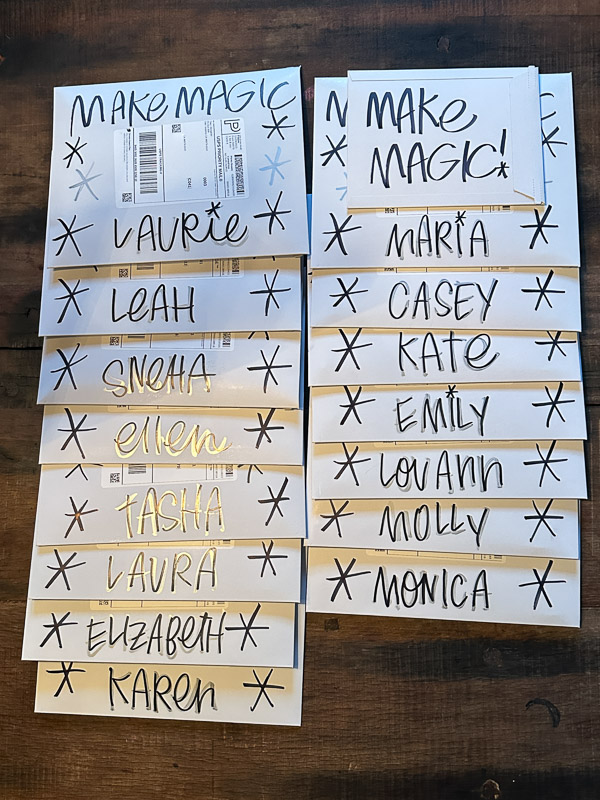 MAKe MAGIC
USPS PRIORITY MAIL
P
LAURie
LeAH
SNeHA
ellen
TASHA
LAURA
ELIZABetH
KAREn
M
MAKe
MAGIC!
MARiA
CASEY
KATe
EMiLY
LOUAnn
MOLLY
MONICA